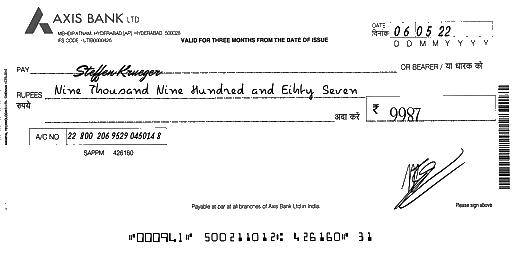 AXIS BANK LTD
MEHDIPATNAM, HYDERABAD [AP] HYDERABAD 500028
IFS CODE - UTIB0000426
VALID FOR THREE MONTHS FROM THE DATE OF ISSUE
DATE दिनांक 06 05 22
D D M M Y Y Y Y
PAY Steffen Krueger OR BEARER / या धारक को
RUPEES Nine Thousand Nine Hundred and Eihty Seven
रुपये अदा करें ₹ 9987
A/C NO 22 800 206 9529 045014 8
SAPPM 426160
Payable at par at all branches of Axis Bank Ltd in India.
Please sign above
⑈000941⑈ 500211012⑆ 426160⑈ 31